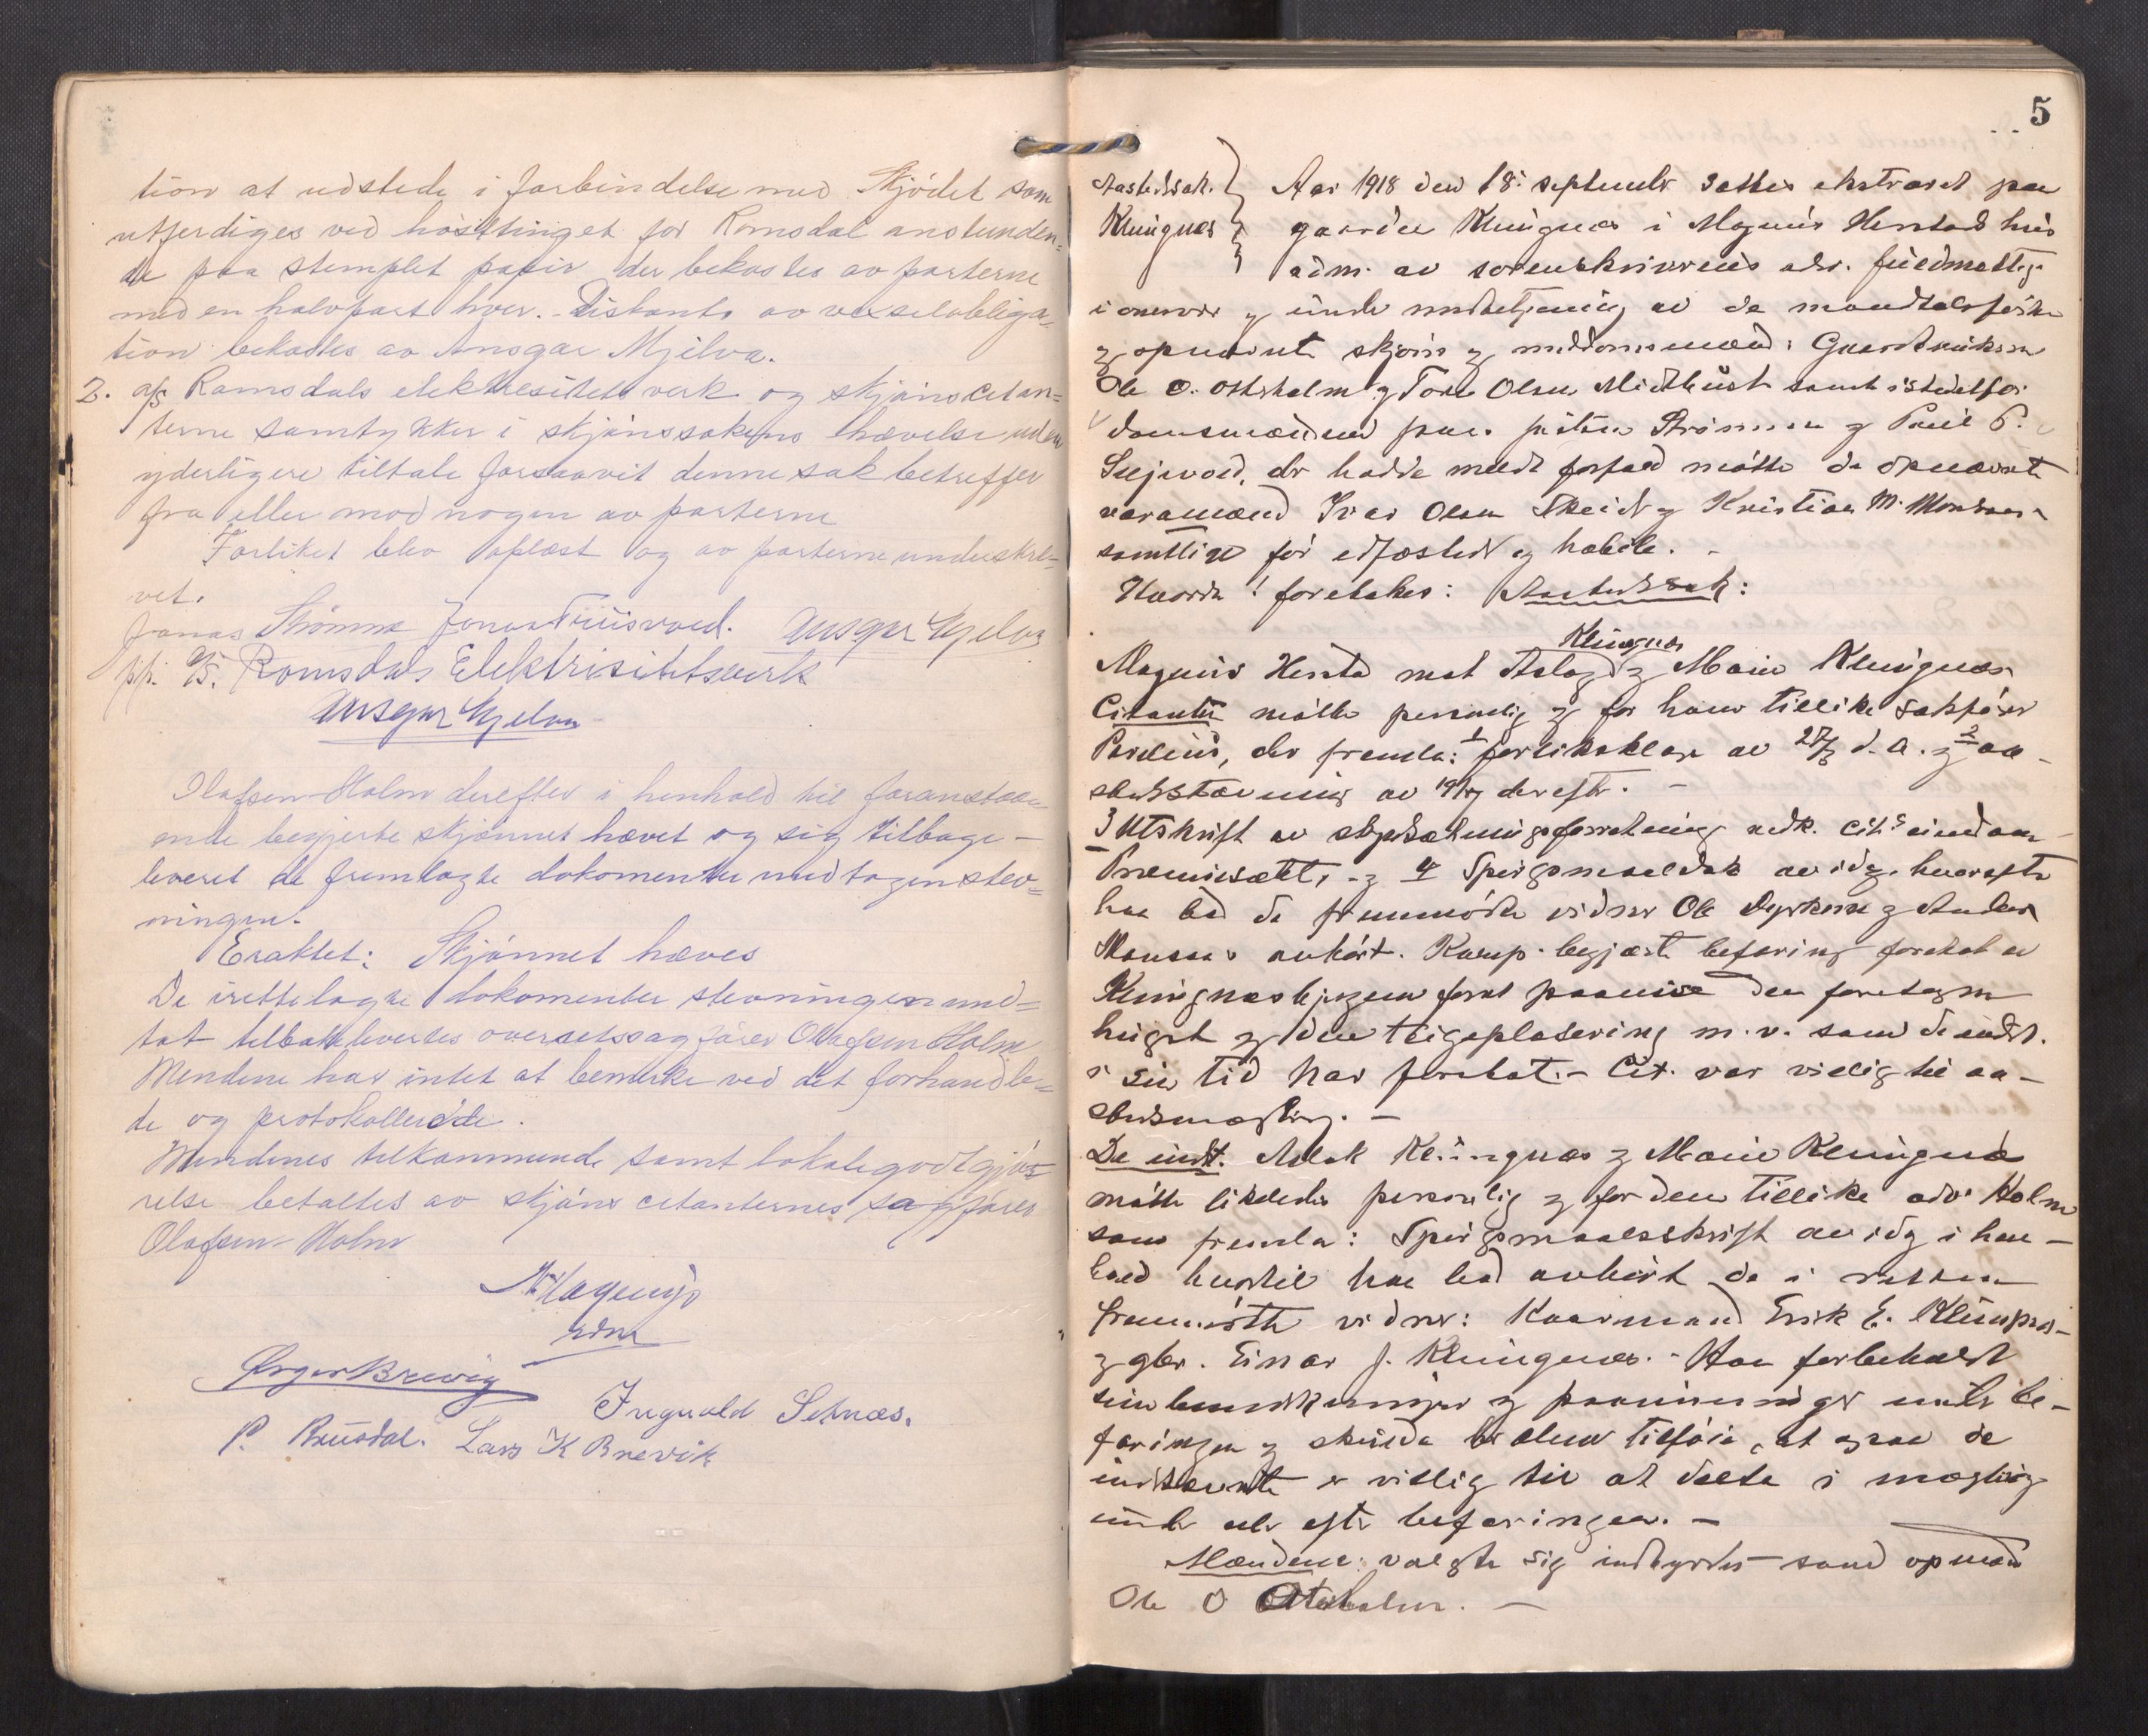 tion at udstede i forbindelse med Skjödet som
utferdiges ved hösttinget for Romsdal anslunden=
de paa stemplet papir der bekostes av parterne
med en halvpart hver. - Diskonto av vexelobliga=
tion bekostes av Ansgar Mjelva.
2. A/S Ramsdals elektresitetsverk og skjönscitan=
terne samtykker i skjönssakens hævelse uden
yderligere tiltale forsaavit denne sak betreffer
fra eller mod nogen av parterne
Forliket blev oplæst og av parterne underskre=
vet.
Jonas Strømme Jonas Friisvold. Ansgar Mjelva
pp. A/S. Romsdals Elektrisitetsverk
Ansgar Mjelva
Olafsen-Holm derefter i henhold til foranstaa=
ende begjerte skjønnet hævet og sig tilbage-
leveret de fremlagte dokomenter undtagen stev=
ningen.
Eraktet: Skjønnet hæves
De irettelagte dokomenter stevningen und=
tat tilbakelevertes overretssagfører Olafsen Holm
Mendene har intet at bemerke ved det forhandle=
de og protokollerede.
Mendenes tilkommende samt lokalegodtgjø=
relse betaltes av skjøns citanternes sagfører
Olafsen-Holm
Asger Brevig Ingvald Setnæs.
P. Brusdal. Lars K Brevik
5
Aastedssak. Aar 1918 den 18. septembr sattes ekstraret paa
Klungnes gaarden Klungnes i Magnus Herstad hus
adm. av sorenskriverens adv. fuldmægtig
i nærvær og under medbetjening av de mandtalsførte
og opnævnte skjøns og meddomsmænd: Gaardbrukerne
Ole O. Otterholm og Tore Olsen Midthust samt istedetfor
domsmændene Strømmen og Paul P.
der hadde meldt forfald møtte de opnævnte
varamænd Ivar Olsen Skeid og Kristian M. Monsaas
samtlige før edfæstet og habile. -
Hvorda! foretokes: Aastedssak:
Klungnes
Magnus Hersta mot Aslag og Marie Klungnes
Citanten møtte personlig og for ham tillike sakfører
der fremla: 1 forliksklage av 27/7 d. A. og 2 aa-
stedsstævning av derefter. -
3 Utskrift av utskiftningsforretning vedk. cit.s eiendom
og 4 Spørgsmaalsdok av idag. hvorefter
han bad de fremmøtte vidner Ole Dyrkorn og Anders
Monsaas avhørt. Komp. begjærte befaring foretat av
Klungnesbygden forat paavise den foretagne
hugst og den teigeplasering m.v. som de indst.
i sin tid har foretat. - Cit. var villig til aa-
stedsmægling. -
De indst. Aslak Klungnes og Marie Klungnes
møtte likeledes personlig og for dem tillike adv. Holm
som fremla: Spørgsmaalsskrift av idag i hen-
hold hvortil han bad avhørt de i retten
fremmøtte vidner: Kaarmand Erik E. Klungnes-
og gbr. Einar J. Klungnes. - Han forbeholdt
sine bemerkninger og paavisninger under be-
faringen og skulde bl. alene tilføie, at ogsaa de
indstevnte er villig til at delta i mægling
under eller efter befaringen. -
Mændene valgte sig indbyrdes som opmand
Ole O Otterholm. -